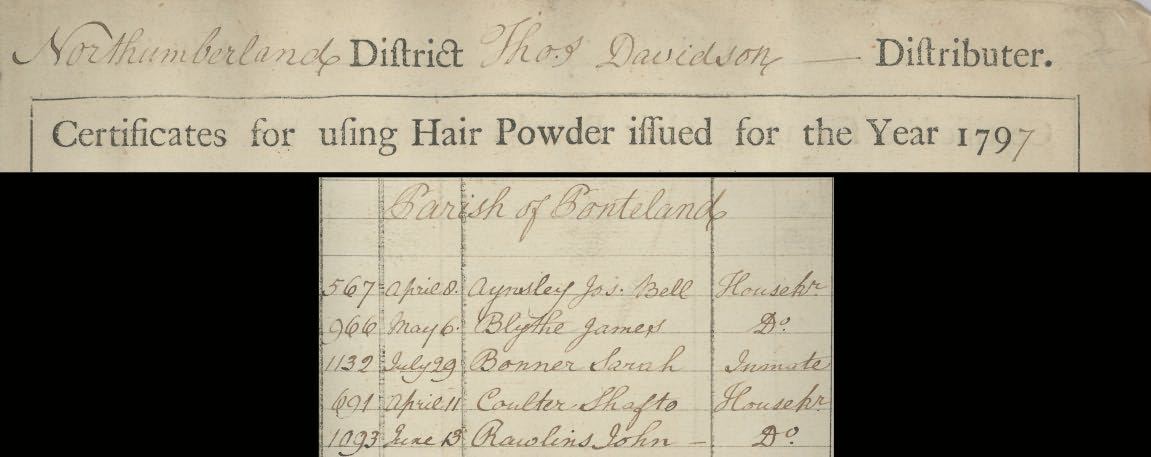 Northumberland Diſtrict Thos Davidson — Diſtributer.
Certificates for uſing Hair Powder iſſued for the Year 1797
Parish of Ponteland
567 April 8. Aynsley Jos. Bell Househr.
966 May 6. Blythe James Do.
1132 July 29 Bonner Sarah Inmate
691 April 11 Coulter Shafto Househr.
1093 June 13 Rawlins John — Do.